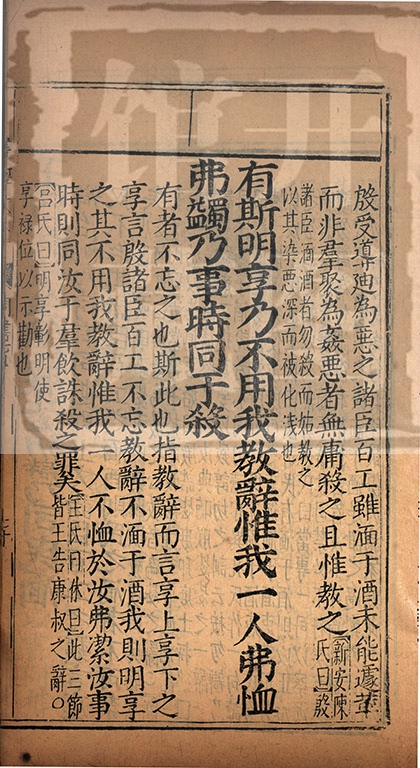 殷受導迪為惡之諸臣百工雖湎于酒未能遽革
而非羣聚為姦惡者無庸殺之且惟教之【新安陳氏曰】殷
諸臣湎酒者勿殺而姑教之
以其染惡深而被化淺也
有斯明享乃不用我教辭惟我一人弗恤
弗蠲乃事時同于殺
有者不忘之也斯此也指教辭而言享上享下之
享言殷諸臣百工不忘教辭不湎于酒我則明享
之其不用我教辭惟我一人不恤於汝弗潔汝事
時則同汝于羣飲誅殺之罪矣【王氏曰休曰】此三節
皆王告康叔之辭○
【呂氏曰】明享彰明使
享祿位以示勸也